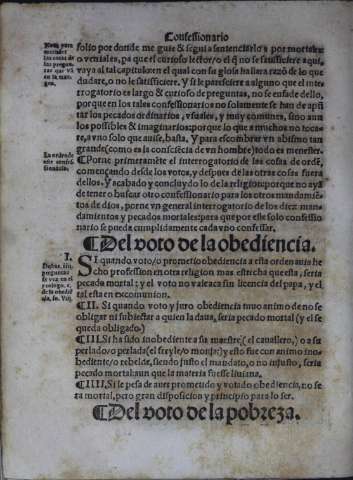 Confessionario
folio por donde me guie & segui a sentenciarlos por mortales
o veniales, pa que el curioso lector/o el q̃ no se satisficiere aqui,
vaya al tal capitulo: en el qual con su glosa hallara razõ de lo que
dudare, o no le satisficiere. Y si le pareſciere a alguno que el inter-
rogatorio es largo & curioso de preguntas, no se enfade dello,
porque en los tales confessionarios no solamente se han de apũ
tar los pecados ordinarios, vsuales, y muy comunes, sino aun
los possibles & imaginarios: porque lo que a muchos no toca-
re, a vno solo que auise, basta. Y para escombrar vn abismo tan
grande (como es la consciẽcia de vn hombre) todo es menester.
¶ Porne primeramẽte el interrogatorio de las cosas de ordẽ,
començando desde los votos, y despues de las otras cosas fuera
dellos. Y acabado y concluydo lo de la religion: porque no aya
de tener o buscar otro confessionario para los otros mandamiẽ
tos de dios, porne vn general interrogatorio de los diez manda
mientos y pecados mortales: para que por este solo confessiona
rio se pueda cumplidamente cada vno confessar.
¶ Del voto de la obediencia.
I.
SI quando voto/o prometio obediencia a esta orden auia he
cho profession en otra religion mas estrecha que esta, seria
pecado mortal; y el voto no valeaca sin licencia del papa, y el
tal esta en excomunion.
¶ II. Si quando voto y juro obediencia tuuo animo de no se
obligar ni subiectar a quien la daua, seria pecado mortal (y el se
queda obligado.)
¶ III. Si ha sido inobediente a su maestre (el cauallero,) o a su
perlado/o perlada (el freyle/o monja:) y esto fue con animo ino-
bediente/o rebelde, siendo justo el mandato, o no injusto, seria
pecado mortal: aun que la materia fuesse liuiana.
¶ IIII. Si le pesa de auer prometido y votado obediencia, no se
ra mortal, pero gran disposicion y principio para lo ser.
¶ Del voto de la pobreza.